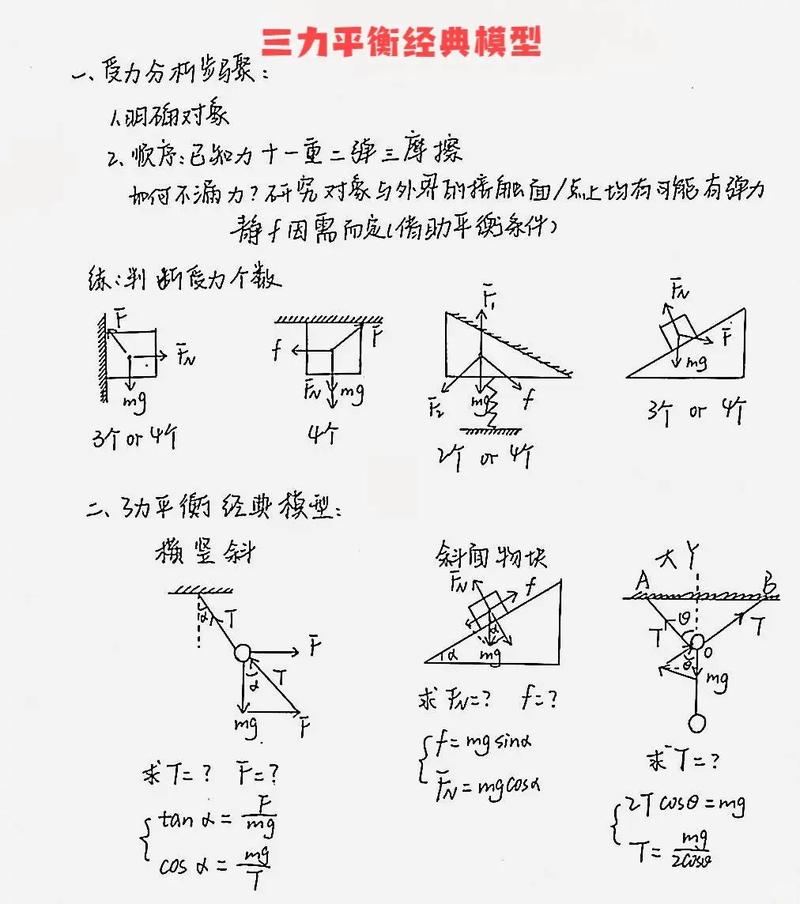 三力平衡经典模型
一、受力分析步骤:
1.明确对象
2、顺序:已知力十一重二弹三摩擦
如何不漏力?研究对象与外界的接触面/点上均有可能有弹力
静f因需而定(借助平衡条件)
练:判断受力个数
F
F_N
mg
3个or 4个
f
F
F_N
mg
4个
F₁
F₂
mg
f
2个 or 4个
F_N
F
mg
3个 or 4个
二、3力平衡经典模型:
横竖斜
α
T
F
α
T
mg
F
求T=? F=?
tan α = F/mg
cos α = mg/T
斜面物块
F_N
f
α
mg
α
求F_N=? f=?
f=mgsinα
F_N=mgcosα
大Y
A
B
T
θ
T
O
θ
mg
求T=?
2Tcosθ=mg
T=mg/2cosθ